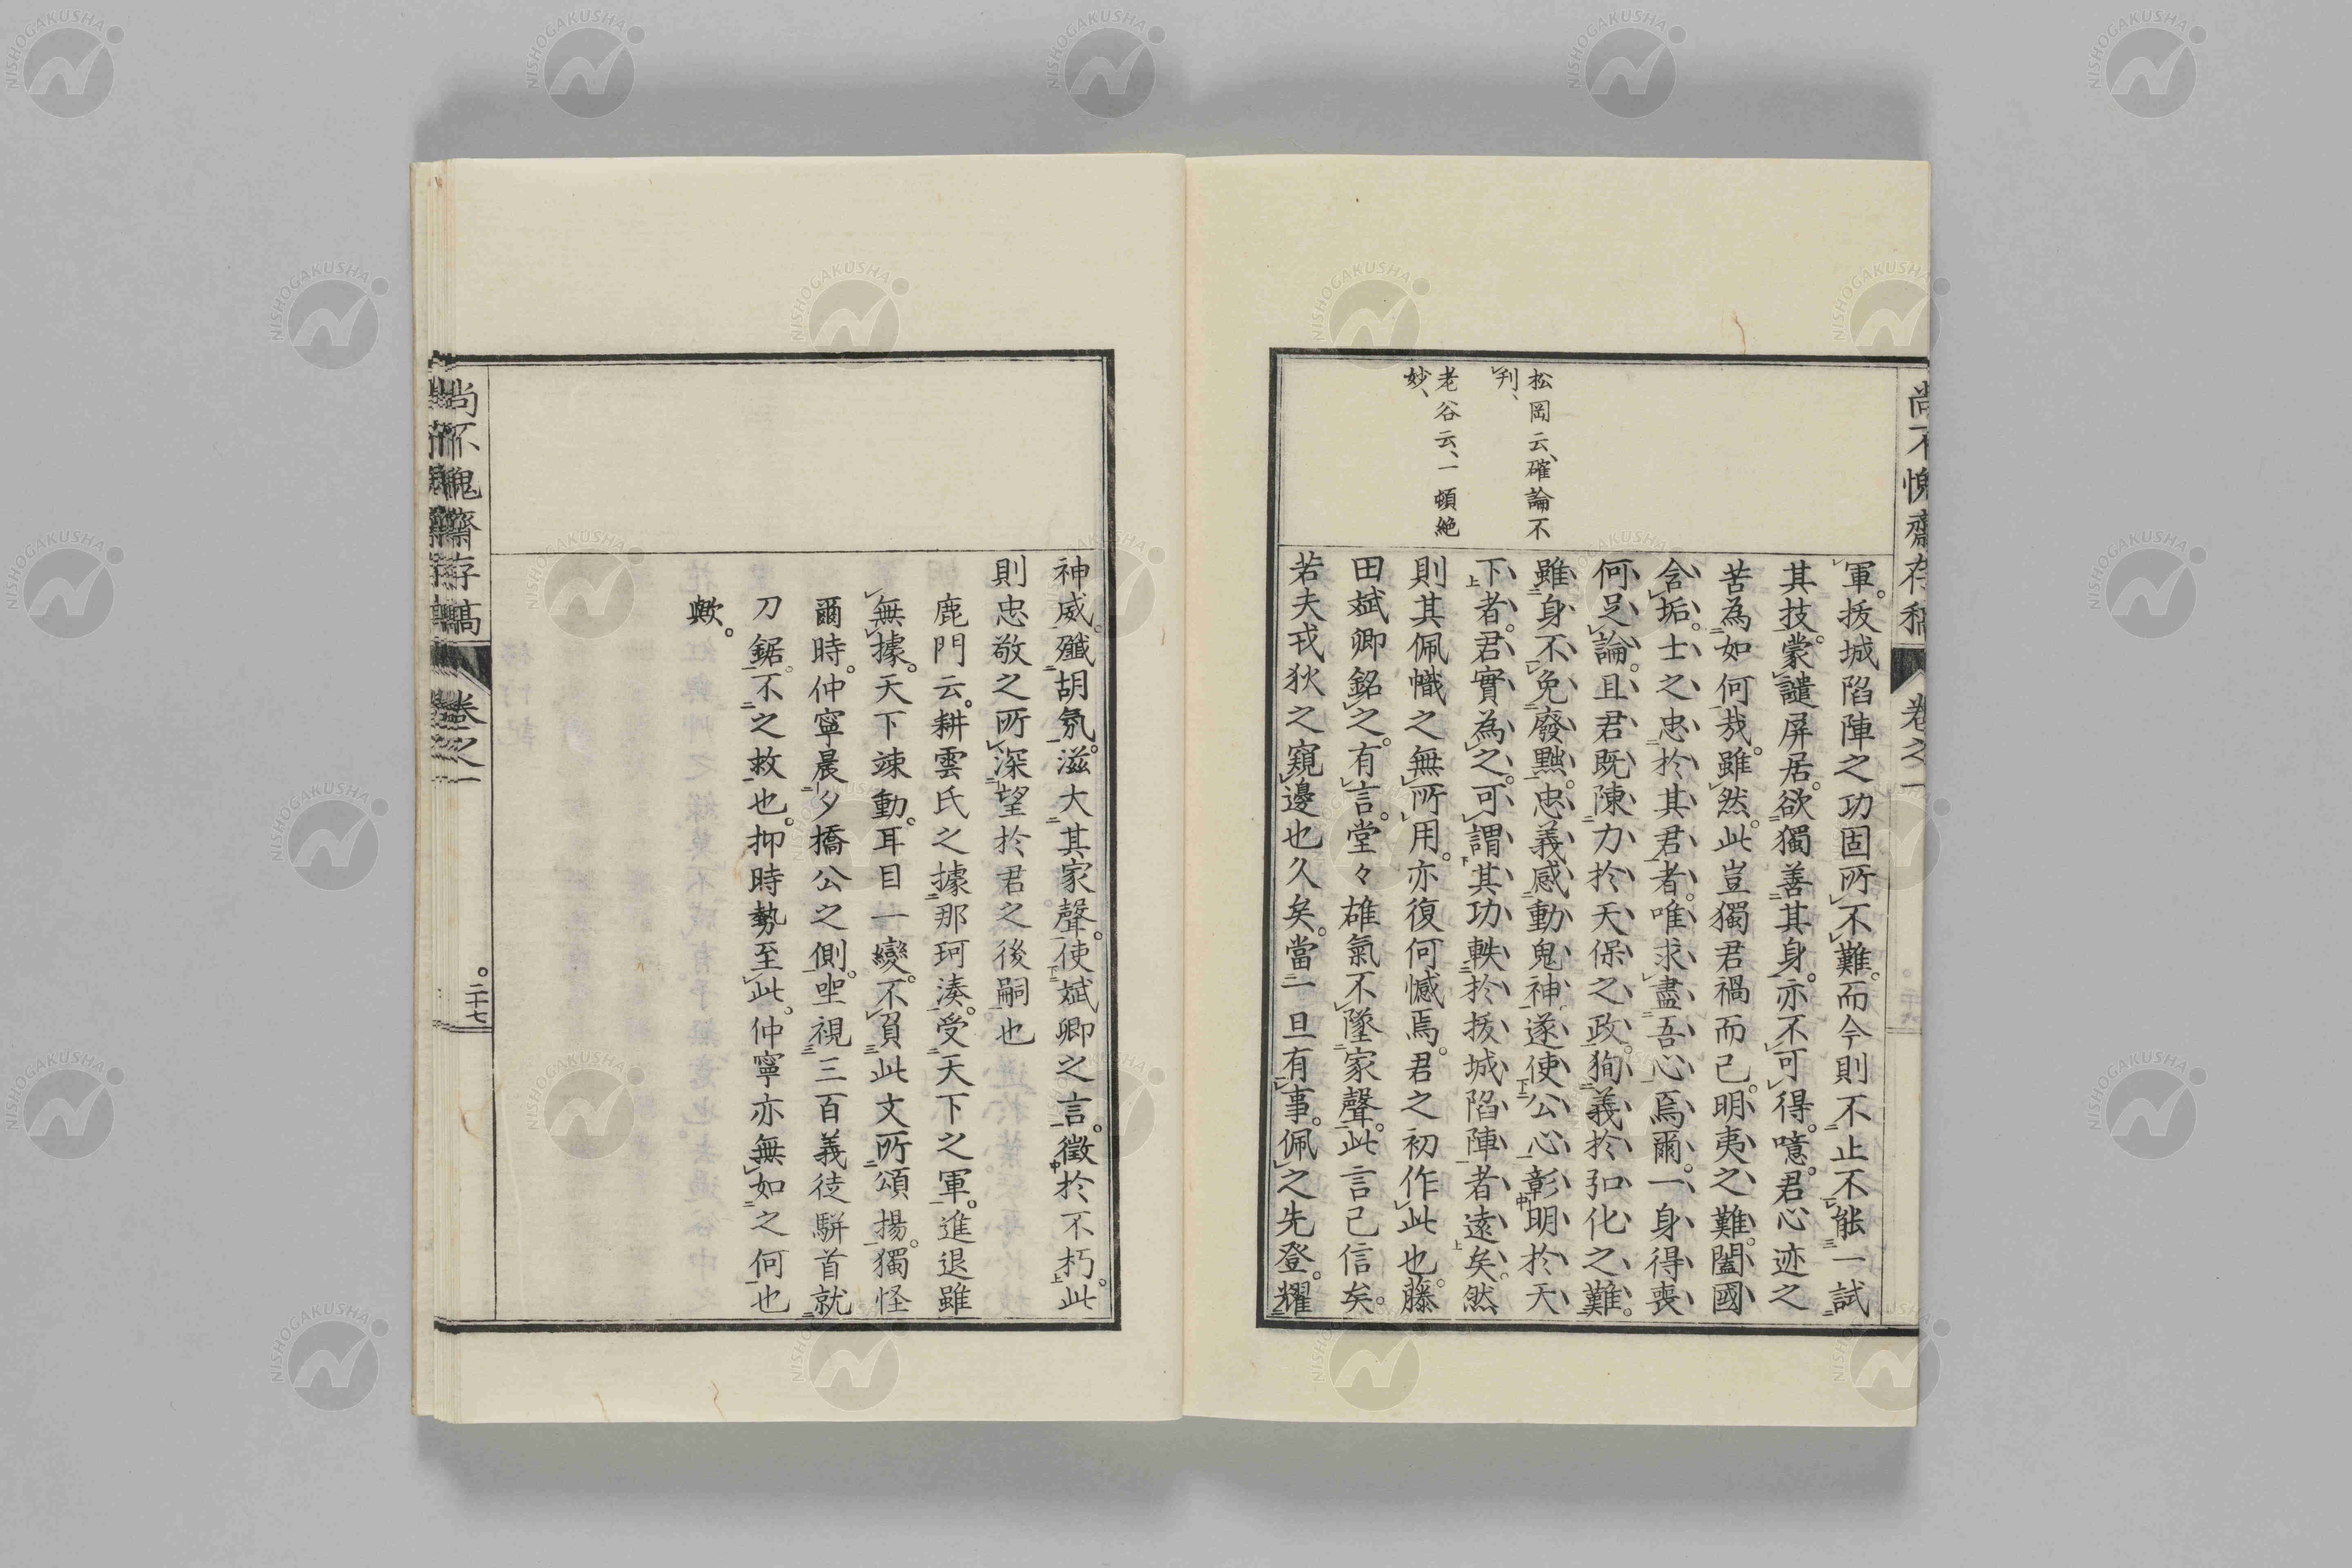 尚不愧齋存稿 卷之一
軍。拔城陷陣之功固所不難。而今則不止不能一試
其技。蒙譴屏居。欲獨善其身。亦不可得。噫。君心迹之
苦為如何哉。雖然。此豈獨君禍而已。明夷之難。闔國
含垢。士之忠於其君者。唯求盡吾心焉爾。一身得喪
何足論。且君既陳力於天保之政。狥義於弘化之難。
雖身不免廢黜。忠義感動鬼神。遂使公心彰明於天
下者。君實為之。可謂其功軼於拔城陷陣者遠矣。然
則其佩幟之無所用。亦復何憾焉。君之初作此也。藤
田斌卿銘之。有言。堂々雄氣不墜家聲。此言已信矣。
若夫戎狄之窺邊也久矣。當一旦有事。佩之先登。耀
松岡云、確論不
刋、
老谷云、一頓絶
妙、
神威。殲胡氛。滋大其家聲。使斌卿之言。徵於不朽。此
則忠敬之所深望於君之後嗣也
鹿門云。耕雲氏之據那珂湊。受天下之軍。進退雖
無據。天下竦動。耳目一變。不負此文所頌揚。獨怪
爾時。仲寧晨夕橋公之側。坐視三百義徒駢首就
刀鋸。不之救也。抑時勢至此。仲寧亦無如之何也
歟。
尚不愧齋存稿 卷之一 二十七
NISHOGAKUSHA